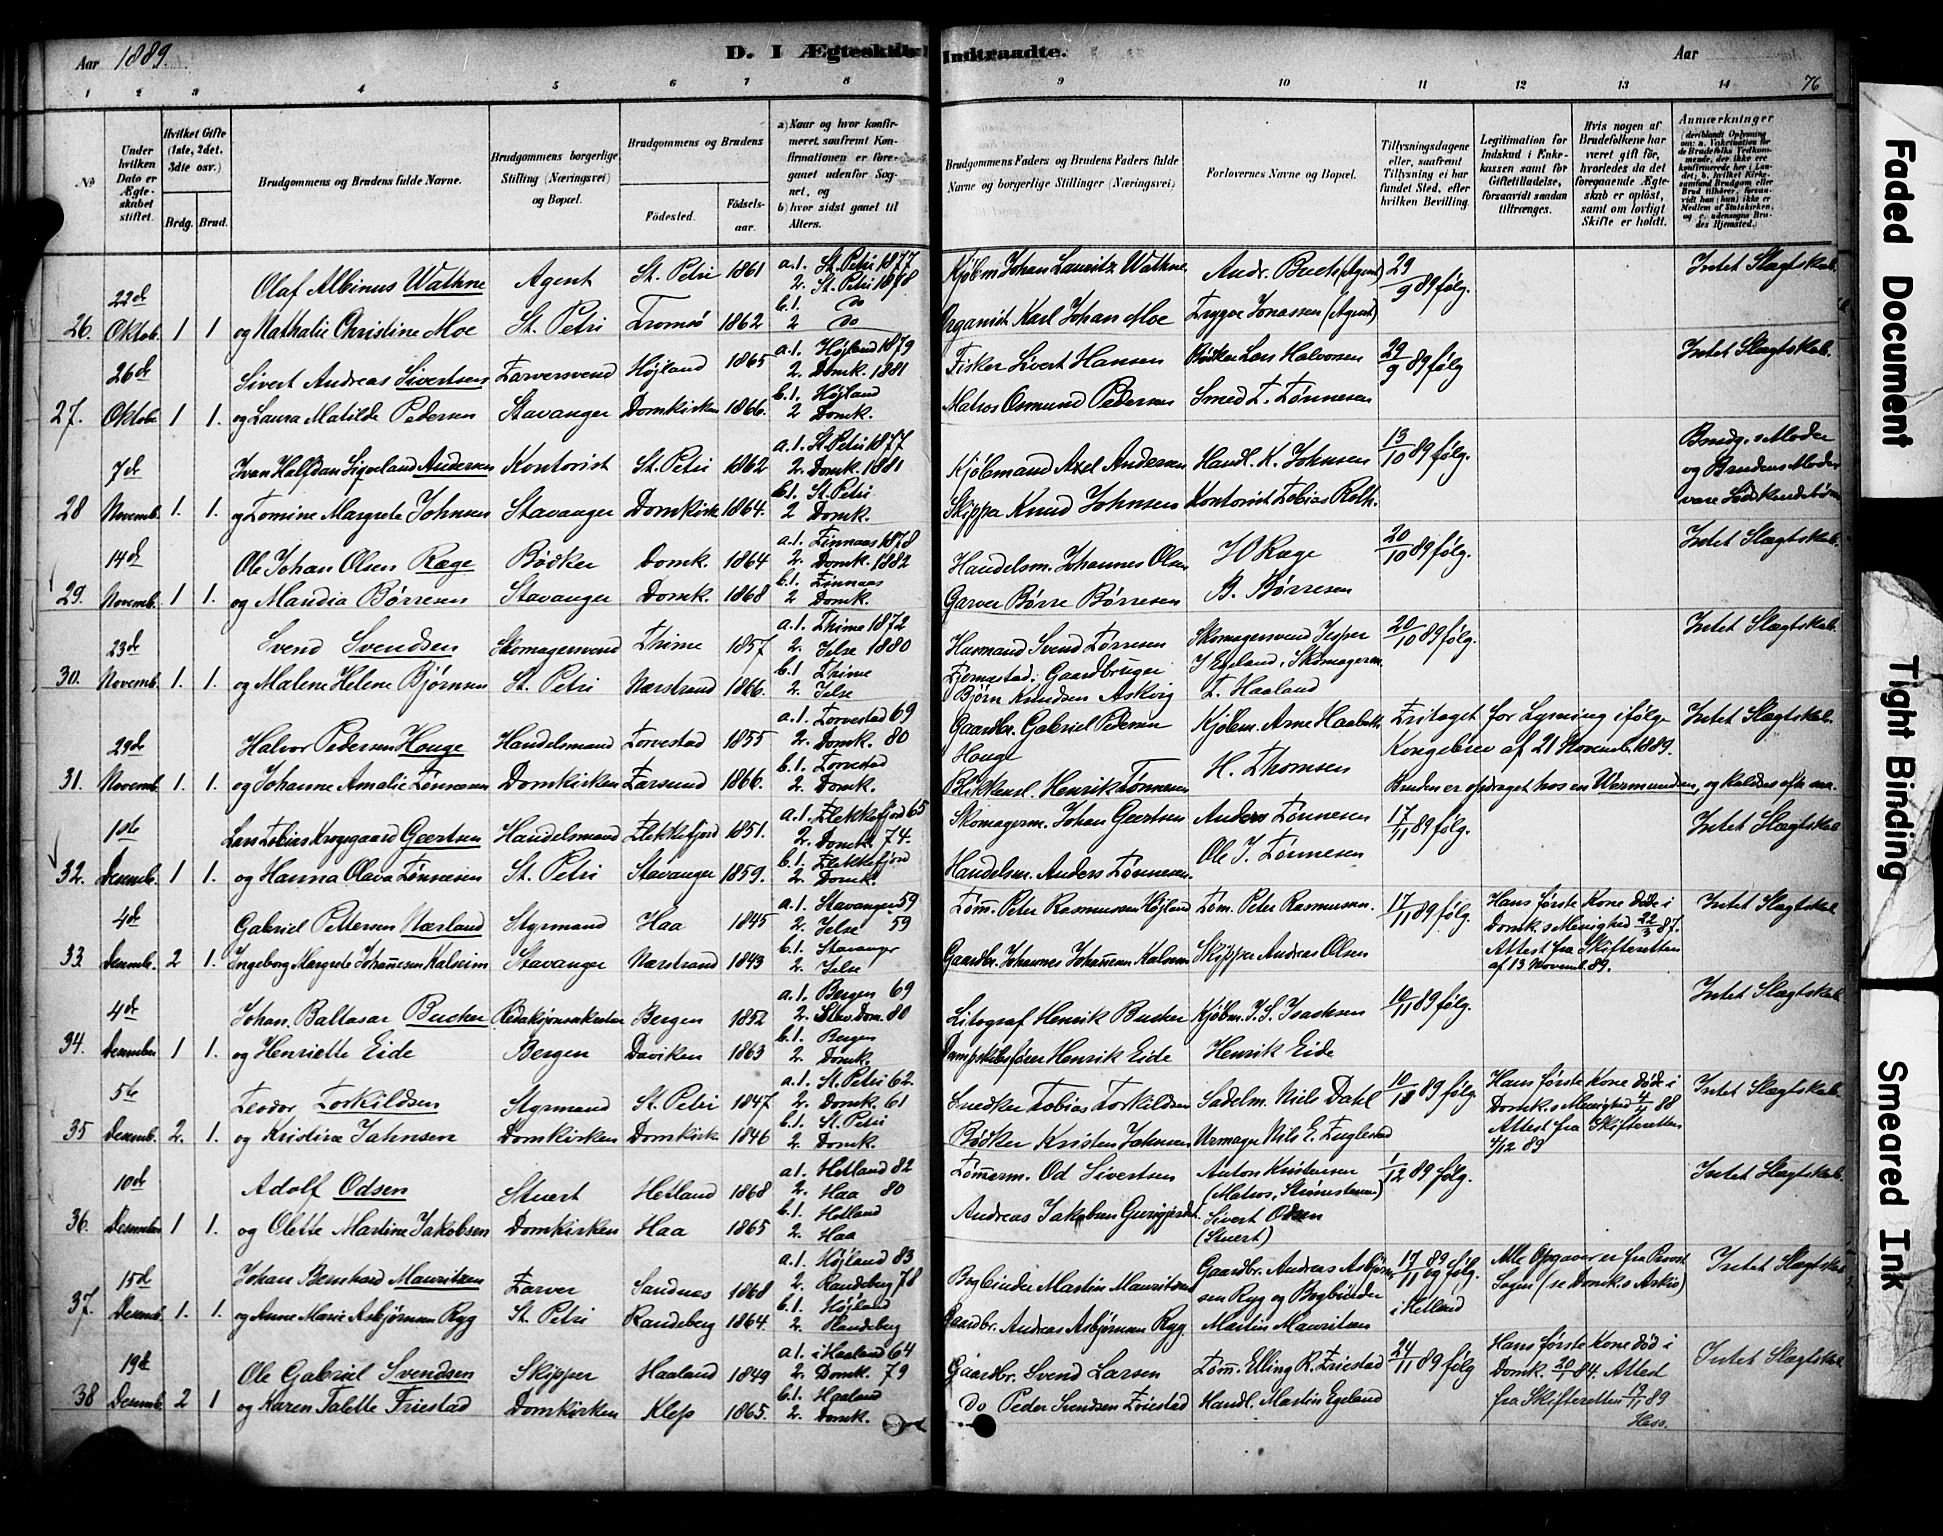 Aar 1889.
D. I Ægteskab Indtraadte.
Aar
76
1 2 3 4 5 6 7 8 9 10 11 12 13 14
No
Under hvilken Dato er Ægteskabet stiftet.
Hvilket Gifte (1ste, 2det, 3die osv.)
Brdg. Brud.
Brudgommens og Brudens fulde Navne.
Brudgommens borgerlige Stilling (Næringsvei) og Bopæl.
Brudgommens og Brudens
Födested.
Födselsaar.
a) Naar og hvor konfirmeret, saafremt Konfirmationen er foregaaet udenfor Sognet, og
b) hvor sidst gaaet til Alters.
Brudgommens Faders og Brudens Faders fulde Navne og borgerlige Stillinger (Næringsvei)
Forlovernes Navne og Bopæl.
Tillysningsdagene eller, saafremt Tillysning ei har fundet Sted, efter hvilken Bevilling.
Legitimation for Indskud i Enkekassen samt for Giftetilladelse, forsaavidt saadan tiltrænges.
Hvis nogen af Brudefolkene har været gift för, hvorledes da det foregaaende Ægteskab er oplöst, samt om lovligt Skifte er holdt.
Anmærkninger
26. 22de Oktob. 1 1 Olaf Albinus Wathne Agent St. Petri 1861 a.1. St. Petri 1877 Kjøbm. Johan Lauritz Wathne Andr. Buch (Agent) 29/9 89 følg. Intet Slægtskab.
2. St. Petri 1878
b.1. do
og Nathalie Christine Moe St. Petri Tromsö 1862 2 do Organist Karl Johan Moe Trygve Jonassen (Agent)
27. 26de Oktob. 1 1. Sivert Andreas Sivertsen Farversvend Højland 1865 a.1. Højland 1879 Fisker Sivert Hansen Bødker Lars Halvorsen 29/9 89 følg Intet Slægtskab.
2. Domk. 1881
b.1. Højland
og Laura Matilde Pedersen Stavanger Domkirken 1866. 2 Domk. Matros Osmund Pedersen Smed T. Tönnesen
28 7de Novemb. 1. 1. Ivan Halfdan Sigveland Andersen Kontorist St. Petri 1862 a.1. St. Petri 1877 Kjøbmand Axel Andersen Handl. K. Johnsen 13/10 89 følg. Brudg.s Moder
2. Domk. 1881 og Brudens Moder
b.1. St. Petri
og Tomine Margrete Johnsen Stavanger Domkirke 1864. 2 Domk. Skipper Knud Johnsen Kontorist Tobias Roth. vare Södskendebørn
29. 14de Novemb. 1 1. Ole Johan Olsen Ræge Bødker Domk. 1864 a.1. Finnaas 1878 Handelsm. Johannes Olsen Ræge 20/10 89 følg. Intet Slægtskab.
2. Domk. 1882
b.1. Finnaas
og Mandia Børresen Stavanger Domk. 1868 2 Domk. Garver Børre Børresen B. Børresen
30. 23de Novemb. 1. 1. Svend Svendsen Skomagersvend Thime 1857 a.1. Thime 1872 Husmand Svend Tørresen Skomagersvend Jesper 20/10 89 følg. Intet Slægtskab.
2. Jelse 1880 Gaardbruger J. Egeland, Skomagerm.
b.1 Thime
og Malene Helene Bjørnsen St. Petri Nærstrand 1866. 2. Jelse Bjørn Knudsen Askvig T. Haaland
31. 29de Novemb. 1. 1. Halvor Pedersen Houge Handelsmand Torvestad 1855 a.1. Torvestad 69 Gaardbr. Gabriel Pedersen Houge Kjøbm. Arne Fritaget for Lysning ifølge Intet Slægtskab.
2. Domk. 80 Kongebrev af 21 Novemb. 1889.
b.1. Torvestad
og Johanne Amalie Tönnesen Domkirken Farsund 1866. 2. Domk. Henrik Tönnesen H. Thomsen Bruden er opdraget hos en og kaldes ofte
32. 1ste Desemb. 1 1. Lars Tobias Geertsen Handelsmand Flekkefjord 1851. a.1. Flekkefjord 65 Skomagerm. Johan Geertsen Anders Tönnesen 17/11 89 følg. Intet Slægtskab
2. Domk. 74.
b.1. Flekkefjord
og Hanna Olava Tönnesen St. Petri Stavanger 1859. 2. Domk. Handelsm. Anders Tönnesen. Ole J. Tönnesen
33. 4de Desemb. 2 1. Gabriel Pettersen Nærland Styrmand Haa 1845 a.1. Stavanger 59 Töm. Peter Rasmussen Højland Töm. Peter Rasmussen. 17/11 89 følg. Hans første Kone døde i Intet Slægtskab
2. Jelse 59 Domk.s Menighed 22/3 87.
b.1. Stavanger Attest fra Skifteretten
Ingeborg Margrete Johannesen Kalheim Stavanger Nærstrand 1843 2. Jelse Gaardbr. Johannes Johannesen Skipper Andreas Olsen af 13 Novemb. 89.
34. 4de Desember 1 1. Johan Baltasar Bucher Redaksjonssekretær Bergen 1852 a.1. Bergen 69 Litograf Henrik Bucher Kjøbm. J. S. Isachsen 10/11 89 følg. Intet Slægtskab
2. Stav. Dom. 80
b.1. Bergen
og Henriette Eide Bergen Daviken 1863 2. Domk. Dampskibsfører Henrik Eide Henrik Eide
35 5te Desemb. 2. 1 Teodor Torkildsen Styrmand St. Petri 1847 a.1. St. Petri 62 Snedker Tobias Torkildsen Sadelm. Niels Dahl 89 følg. Hans første Kone døde i Intet Slægtskab.
2. Domk. 61 Domk.s Menighed 4/4 88
b.1. St. Petri Attest fra Skifteretten
og Kristine Jahnsen Domkirken Domkirk. 1846 2. Domk. Bødker Kristen Jahnsen Urmager Nils E. Fuglestad 4/12 89
36. 10de Desember 1 1. Adolf Odsen Stuert Hetland 1868 a.1. Hetland 82 Tömmerm. Od Sivertsen Anton Kristensen 1/12 89 følg. Intet Slægtskab.
2. Haa 80
b.1. Hetland
og Olette Martine Jakobsen Domkirken Haa 1865 2. Haa Andreas Jakobsen Sivert Odsen (Stuert)
37. 15de Desemb. 1. 1. Johan Bernhard Mauritzen Farver Sandnæs 1868 a.1. Højland 83 Bogbinder Martin Mauritzen Gaardbr. Andreas Asbjørn- 17/11 89 og følg. Alle Opgaver er fra Provst Intet Slægtskab
2. Randeberg 78 sen Ryg og Bogbinder i Hetland
b.1. Højland
og Anne Marie Asbjørnsen Ryg St. Petri Randeberg 1864. 2. Randeberg Gaardbr. Andreas Asbjørnsen Ryg. Martin Mauritzen
38 19de Desemb. 2 1 Ole Gabriel Svendsen Skipper Haaland 1849 a.1. i Haaland 64 Gaardbr. Svend Larsen Töm. Elling R. Friestad 24/11 89 følg Hans første Kone død i Intet Slægtskab
2. Domk. 79 Domk. 20/1 84. Attest
b.1. Haaland
og Karen Talette Friestad Domkirken Klep 1865. 2. Domk. Do Peder Svendsen Friestad Handl. Martin Egeland fra Skifteretten 19/11 89
Faded Document
Tight Binding
Smeared Ink